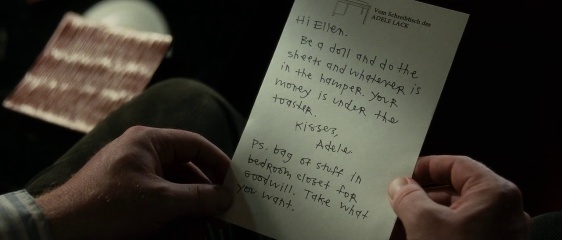 Vom Schreibtisch des
ADELE LACK
Hi Ellen.
Be a doll and do the
sheets and whatever is
in the hamper. Your
money is under the
toaster.
Kisses,
Adele
Ps. bag of stuff in
bedroom closet for
goodwill. Take what
you want.